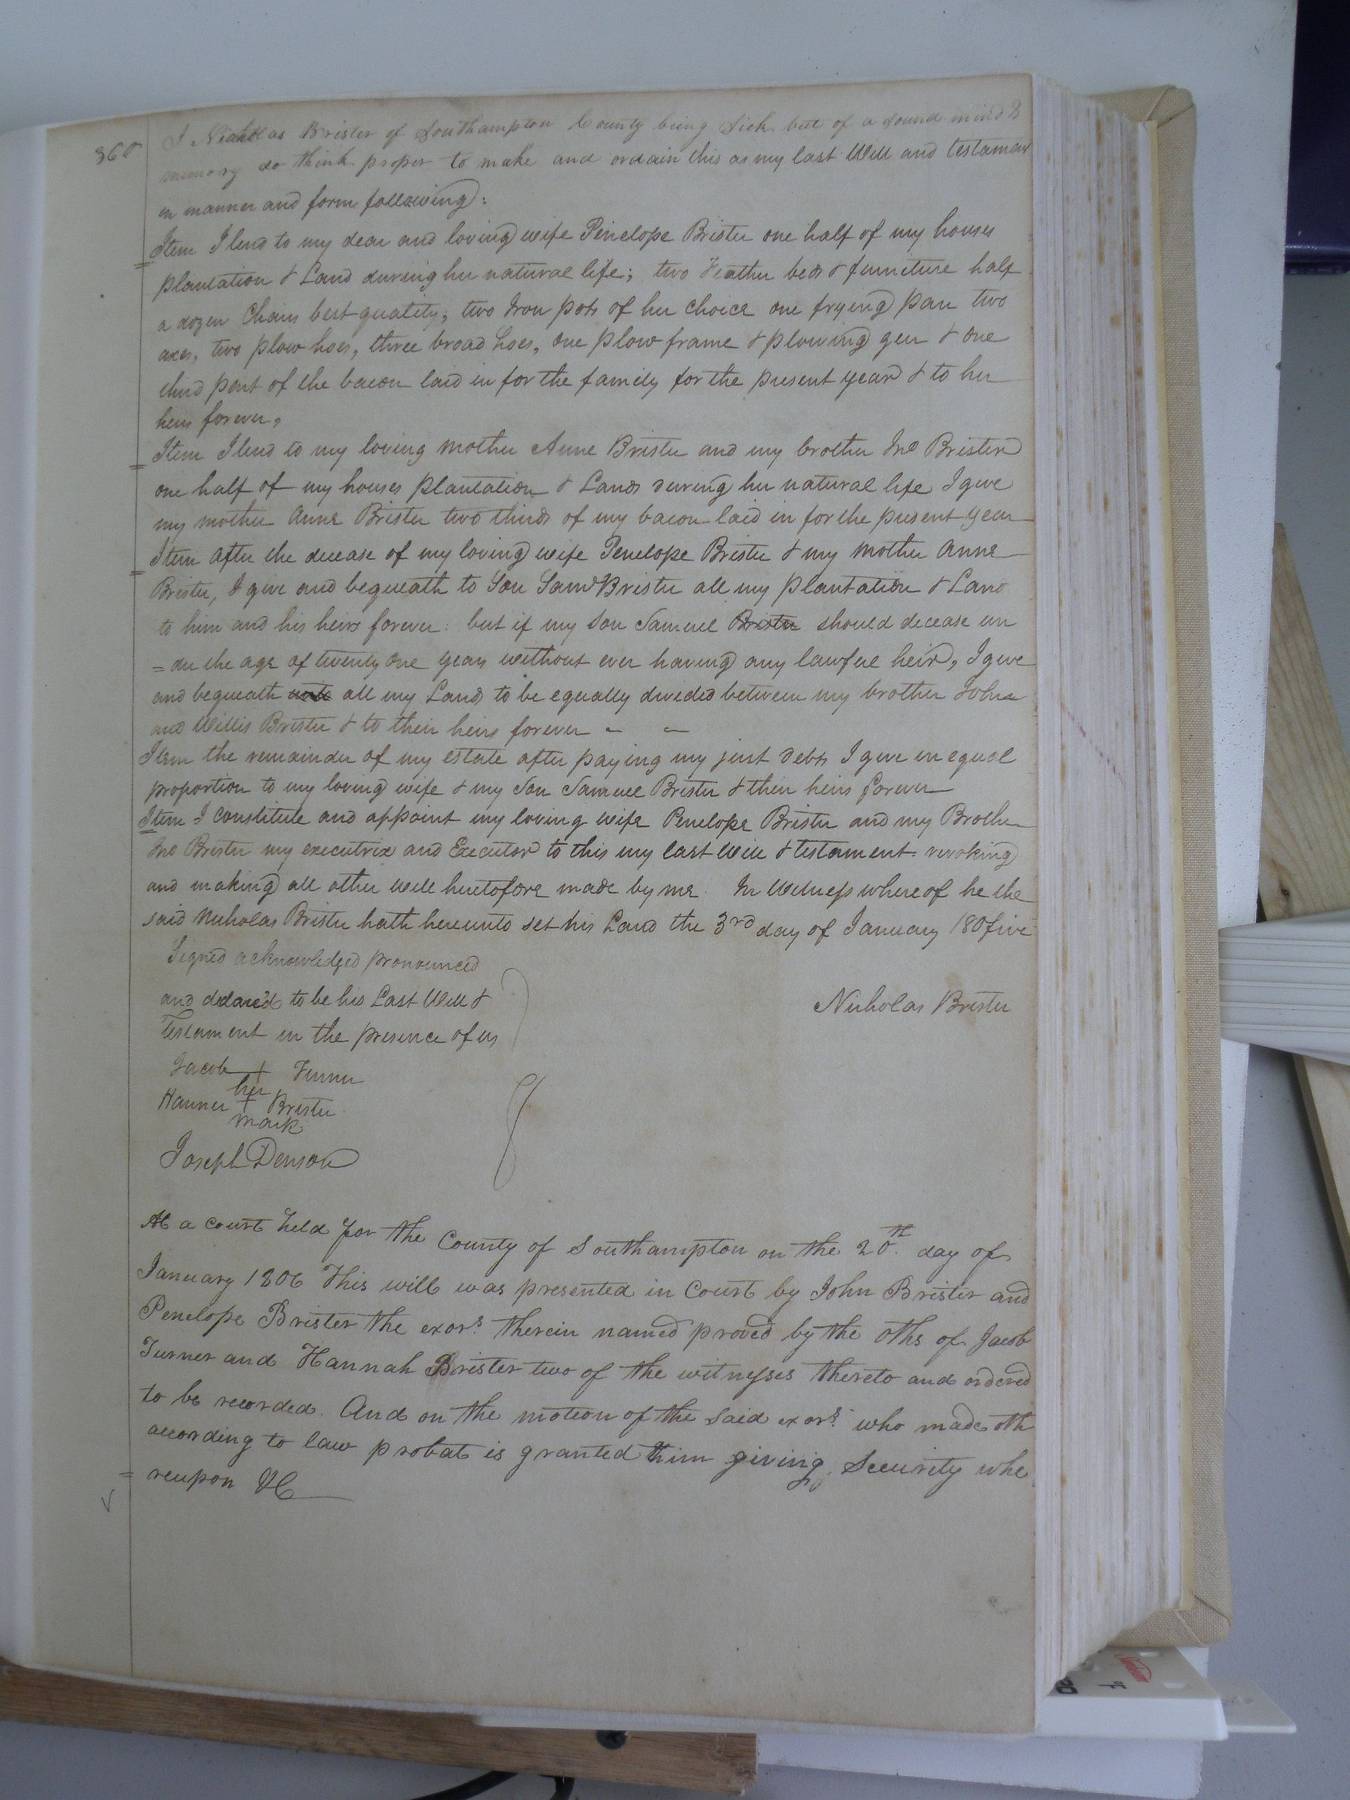 360
I Nicholas Brister of Southampton County being Sick but of a sound mind &
memory do think proper to make and ordain this as my last Will and testament
in manner and form following:
Item I lend to my dear and loving wife Penelope Brister one half of my houses
plantation & Land during her natural life; two Feather beds & furniture half
a dozen Chairs best quality; two Iron pots of her choice one frying pan two
axes, two plow hoes, three broad hoes, one plow frame & plowing geer & one
third part of the bacon laid in for the family for the present year & to her
heirs forever,
Item I lend to my loving mother Anne Brister and my brother Jno Brister
one half of my houses plantation & Lands during her natural life I give
my mother Anne Brister two thirds of my bacon laid in for the present year
Item after the decease of my loving wife Penelope Brister & my mother Anne
Brister, I give and bequeath to Son Saml Brister all my plantation & Land
to him and his heirs forever: but if my son Samuel Brister should decease un
=der the age of twenty one years without ever having any lawful heir, I give
and bequeath all my Land to be equally divided between my brother John
and Willis Brister & to their heirs forever
Item the remainder of my estate after paying my just debts I give in equal
proportion to my loving wife & my Son Samuel Brister & their heirs forever
Item I constitute and appoint my loving wife Penelope Brister and my Brother
Jno Brister my executrix and Executor to this my last will & testament. revoking
and making all other will heretofore made by me. In Witness whereof he the
said Nicholas Brister hath hereunto set his Land the 3rd day of January 180five
Signed acknowledged pronounced
and declared to be his Last Will &
Testament in the presence of us
Nicholas Brister
Jacob + Turner
her
Hanner + Brister
mark
Joseph Denson
At a court held for the County of Southampton on the 20th. day of
January 1806 This will was presented in Court by John Brister and
Penelope Brister the exors. therein named proved by the oths of Jacob
Turner and Hannah Brister two of the witnesses thereto and ordered
to be recorded. And on the motion of the said exors. who made oth
according to law probat is granted them giving Security whe
=reupon &C